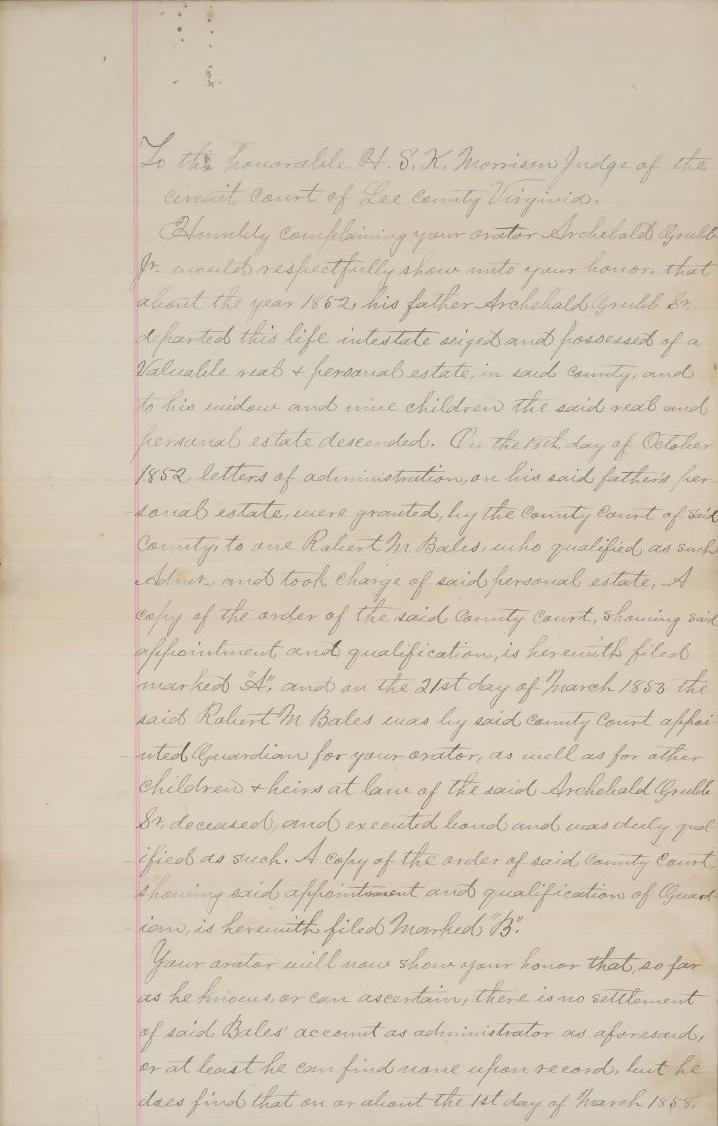 To the honorable H. S. K. Morrison Judge of the
circuit court of Lee County Virginia.
Humbly complaining your orator Archebald Grubb
Jr. would respectfully show unto your honor, that
about the year 1852, his father Archebald Grubb Sr.
departed this life intestate seized and possessed of a
Valuable real & personal estate, in said county, and
to his widow and nine children the said real and
personal estate descended. On the 18th day of October
1852 letters of administration, on his said father's per-
sonal estate, were granted, by the County Court of said
County, to one Robert M Bales, who qualified as such
Admr., and took charge of said personal estate, A
copy of the order of the said County Court, showing said
appointment and qualification, is herewith filed
marked "A". and on the 21st day of March 1853 the
said Robert M Bales was by said County Court appoi-
nted Guardian for your orator, as well as for other
children & heirs at law of the said Archebald Grubb
Sr, deceased, and executed bond and was duly qual-
ified as such. A copy of the order of said County Court,
showing said appointment and qualification of Guard-
ian, is herewith filed Marked "B".
Your orator will now show your honor that, so far
as he knows, or can ascertain, there is no settlement
of said Bales' account as administrator as aforesaid,
or at least he can find none upon record, but he
does find that on or about the 1st day of March 1858.